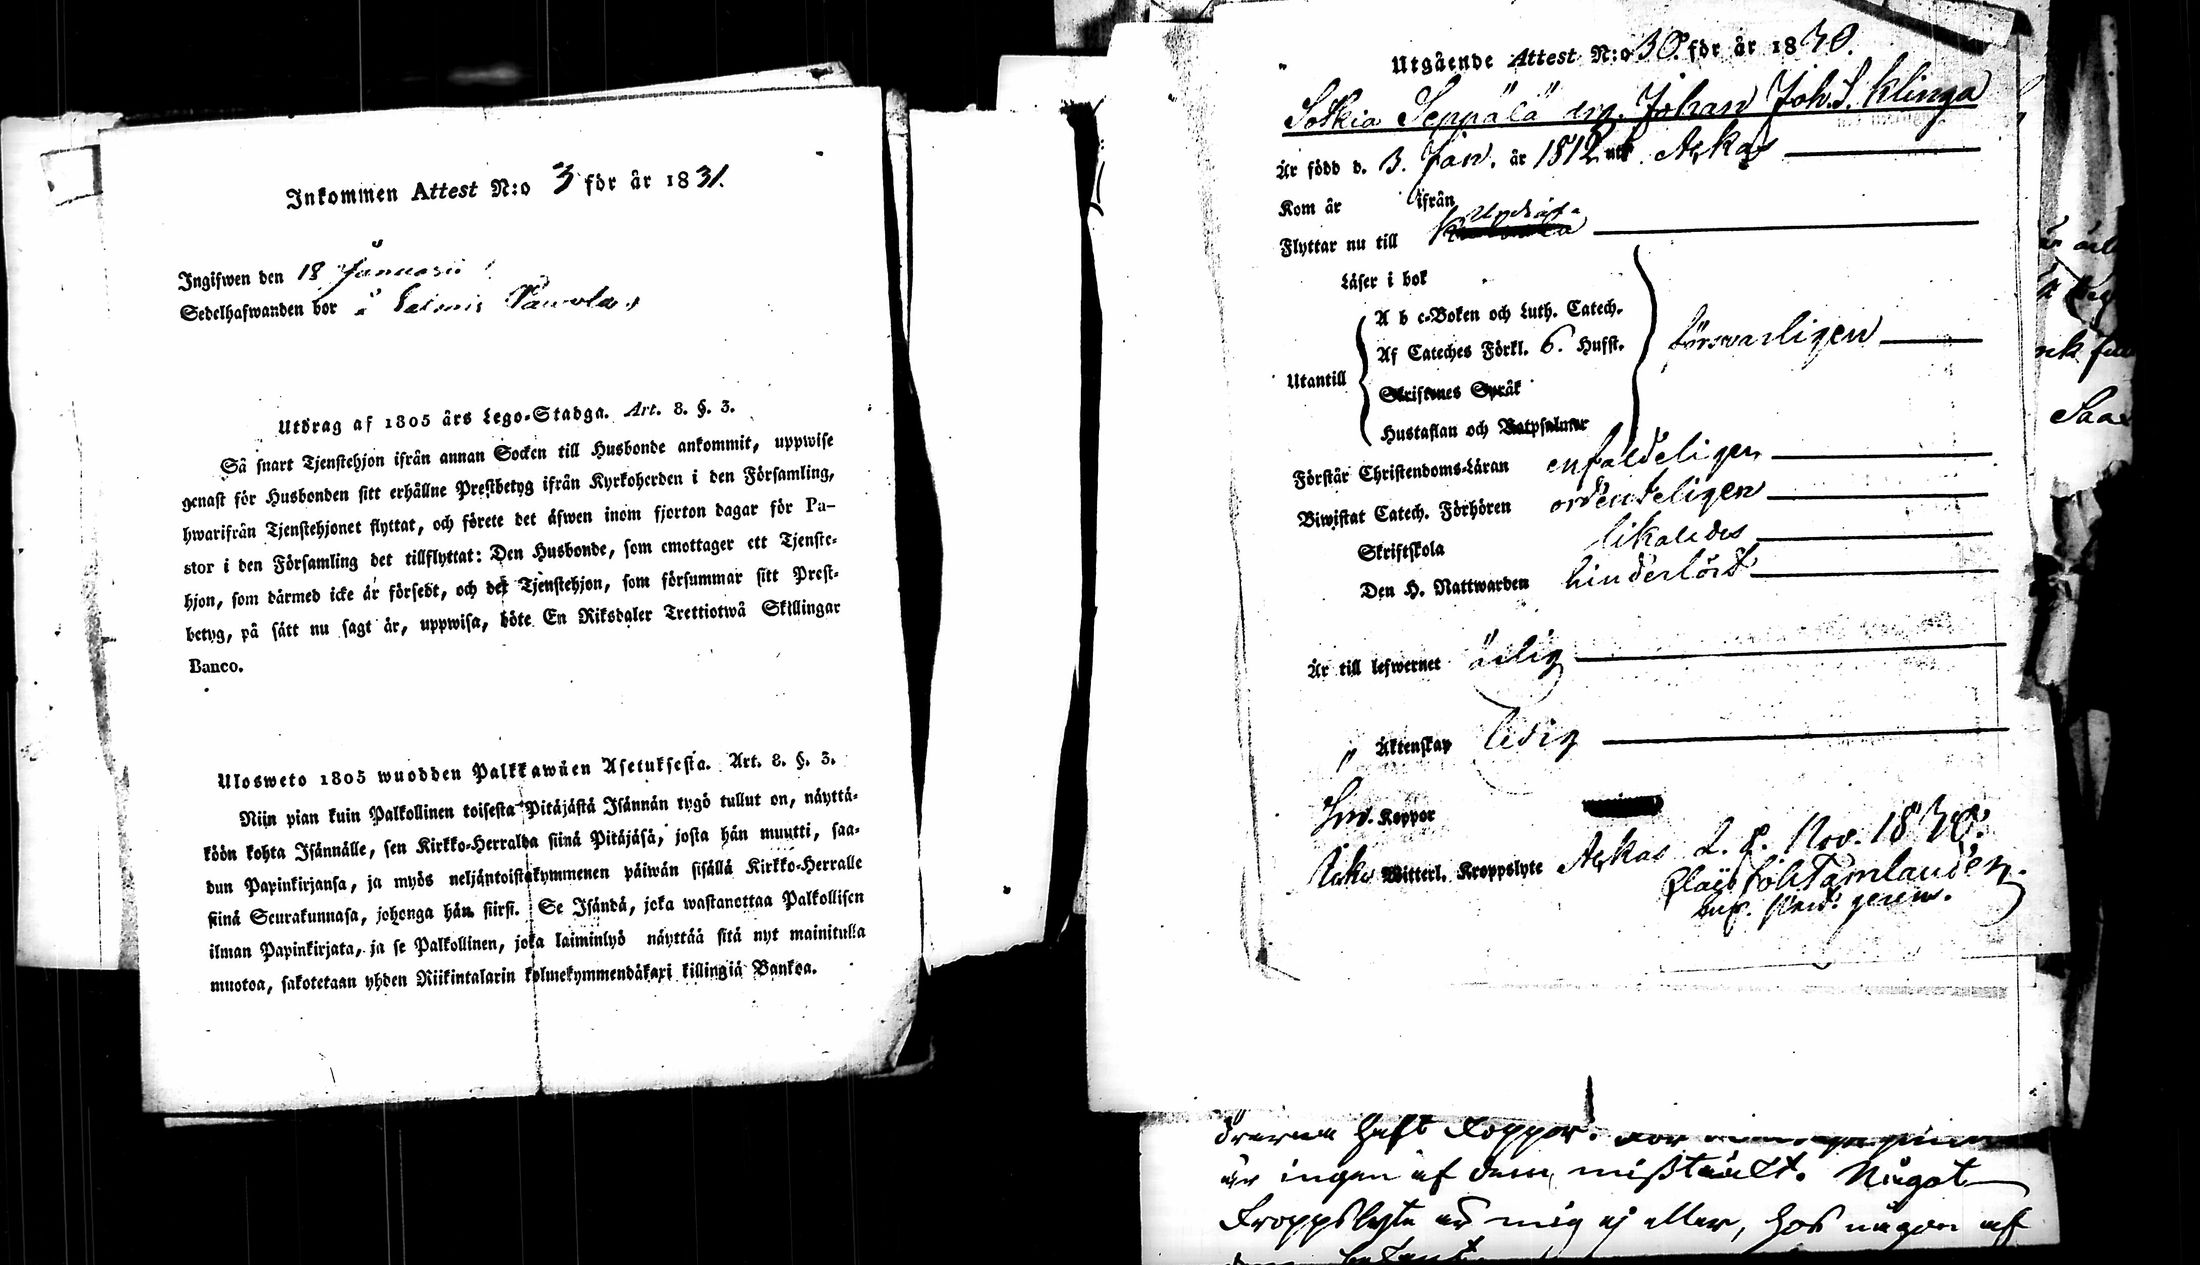 Inkommen Attest N:o 3 för år 1831.
Ingifwen den 18 Januarii
Sedelhafwanden bor å Pawola
Utdrag af 1805 års Lego-Stadga. Art. 8. §. 3.
Så snart Tjenstehjon ifrån annan Socken till Husbonde ankommit, uppwise
genast för Husbonden sitt erhållne Prestbetyg ifrån Kyrkoherden i den Församling,
hwarifrån Tjenstehjonet flyttat, och förete det äfwen inom fjorton dagar för Pa-
stor i den Församling det tillflyttat: Den Husbonde, som emottager ett Tjenste-
hjon, som därmed icke är försedt, och det Tjenstehjon, som försummar sitt Prest-
betyg, på sätt nu sagt är, uppwisa, böte En Riksdaler Trettiotwå Skillingar
Banco.
Ulosweto 1805 wuodden Palkkawäen Asetuksesta. Art. 8. §. 3.
Niin pian kuin Palkollinen toisesta Pitäjästä Isännän tygö tullut on, näyttä-
köön kohta Isännälle, sen Kirkko-Herralda siinä Pitäjäsä, josta hän muutti, saa-
dun Papinkirjansa, ja myös neljäntoistakymmenen päiwän sisällä Kirkko-Herralle
siinä Seurakunnasa, johonga hän siirsi. Se Isändä, joka wastanottaa Palkollisen
ilman Papinkirjata, ja se Palkollinen, joka laiminlyö näyttää sitä nyt mainitulla
muotoa, sakotetaan yhden Riikintalarin kolmekymmendäkaxi killingiä Bankoa.
Utgående Attest N:o 30 för år 1830.
Sotkia Seppälä drg. Johan Joh. S. Klinga
Är född d. 3. Jan. år 1812 uti Ackas
Kom år ifrån
Flyttar nu till Urdiala
Läser i bok
A b c-Boken och Luth. Catech.
Af Cateches Förkl. 6. Hufst. försvarligen
Utantill
Skriftenes Språk
Hustaflan och Botpsalmer
Förstår Christendoms-Läran enfaldeligen
Biwistat Catech. Förhören ordenteligen
Skriftskola likaledes
Den H. Nattwarden hinderlöst
Är till lefwernet ärlig
" Äktenskap ledig
Koppor
Witterl. Kroppslyte Ackas d. 8. Nov. 1830.
haft koppor.
är ingen af dem misstänkt. Något
kroppslyte är mig ej eller, hos någon af